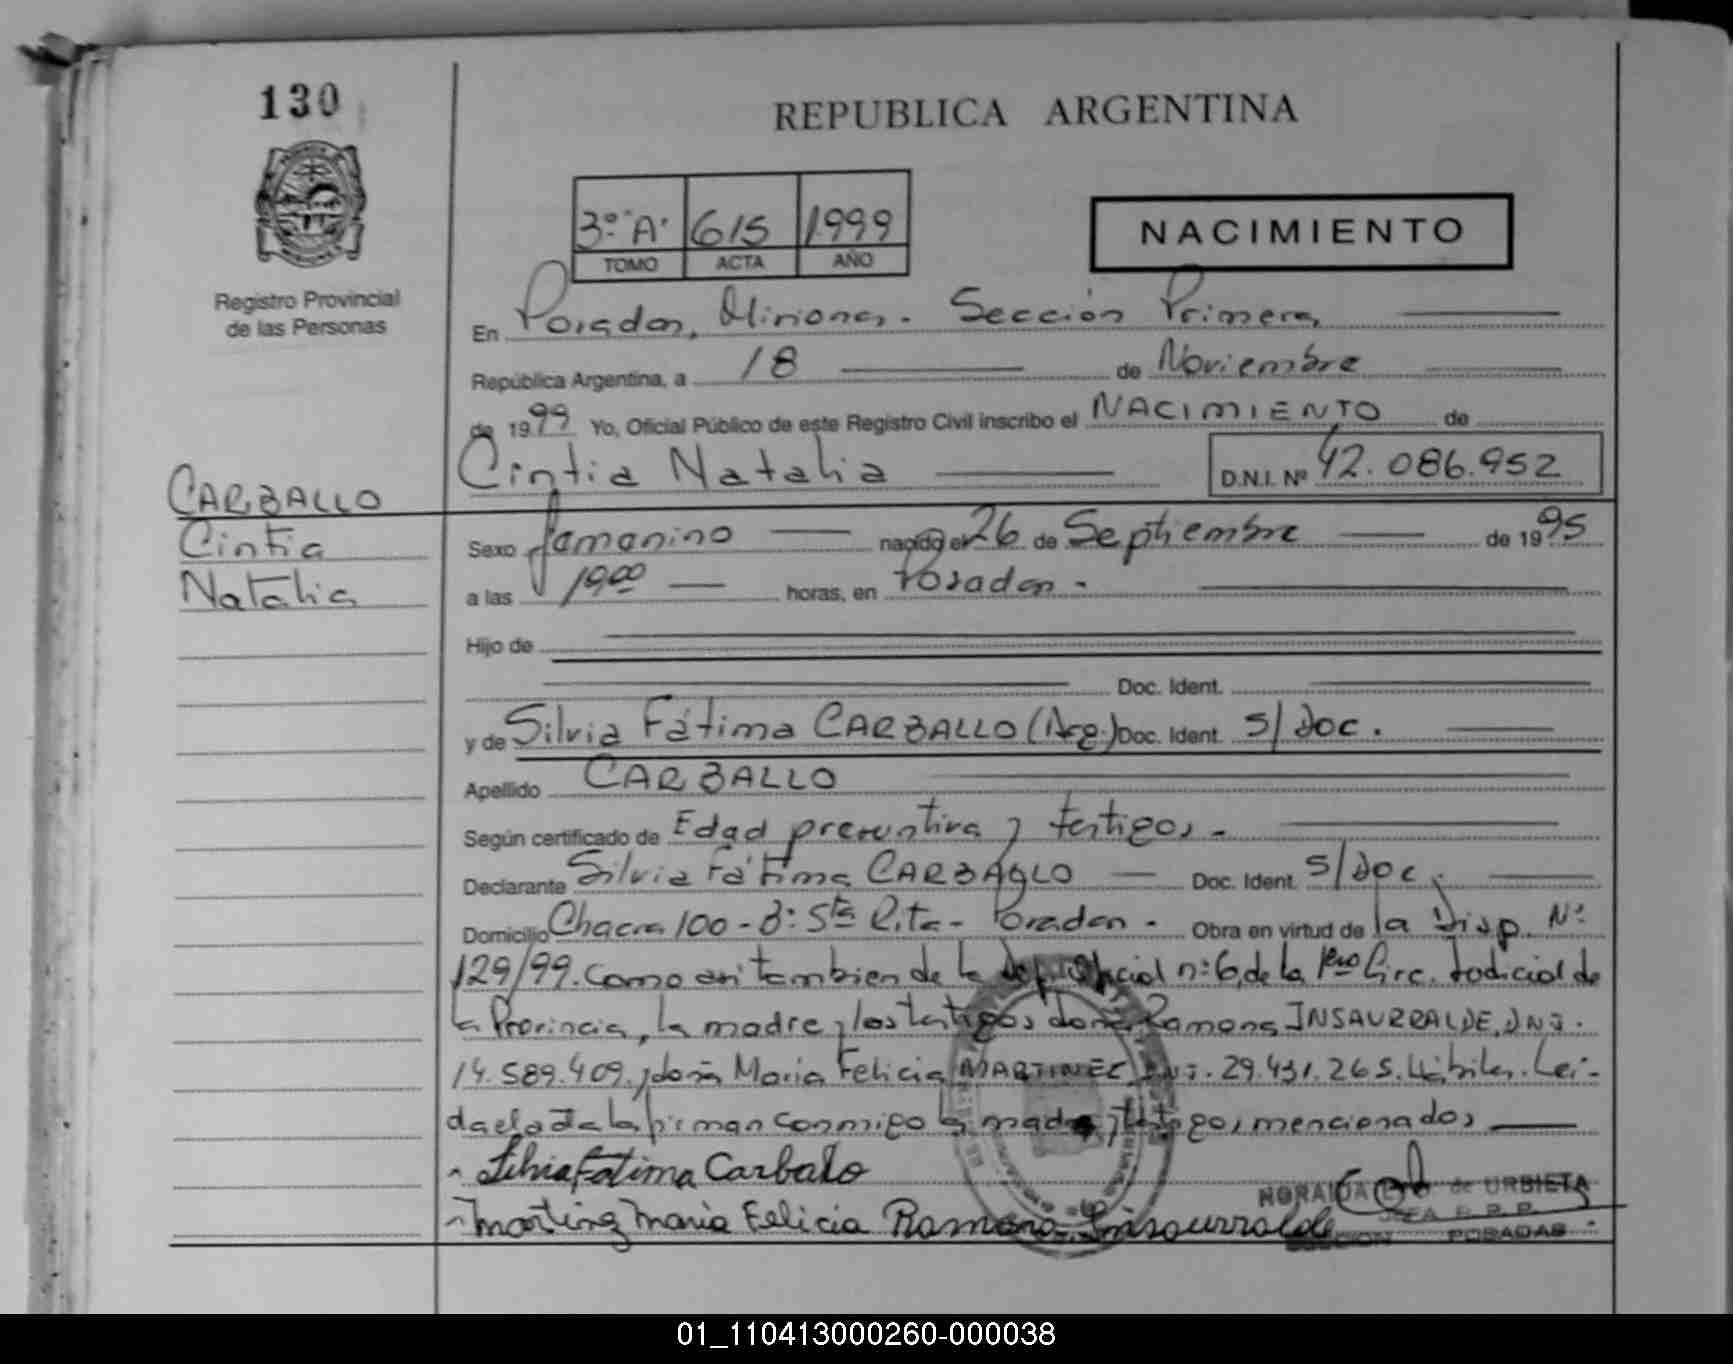 130
REPUBLICA ARGENTINA
3º "A" 615 1999
TOMO ACTA AÑO
NACIMIENTO
Registro Provincial
de las Personas
En Posadas, Misiones. Sección Primera
República Argentina, a 18 de Noviembre
de 1999 Yo, Oficial Público de este Registro Civil inscribo el NACIMIENTO de
Cintia Natalia D.N.I. Nº 42.086.952
CARBALLO
Cintia
Natalia
Sexo femenino nacido el 26 de Septiembre de 1995
a las 19:00 horas, en Posadas -
Hijo de
Doc. Ident.
y de Silvia Fátima CARBALLO (Arg.) Doc. Ident. S/Doc.
Apellido CARBALLO
Según certificado de Edad presuntiva y testigos -
Declarante Silvia Fátima CARBALLO Doc. Ident. S/Doc.
Domicilio Chacra 100 - B: Sta Rita - Posadas - Obra en virtud de la Disp. Nº
129/99. Como asi tambien de la Oficial nº 6, de la 1era Circ. Judicial de
la Provincia, la madre y los testigos doña Ramona INSAURRALDE, DNI.
14.589.409, y doña Maria Felicia MARTINEZ DNI. 29.431.265. Hábiles. Lei-
da el acta la firman conmigo la madre y testigos mencionados
Silvia Fatima Carballo
Martinez Maria Felicia Ramona Insaurralde
NORAIDA de URBIETA
JEFA R.P.P.
SECCION POSADAS
01_110413000260-000038